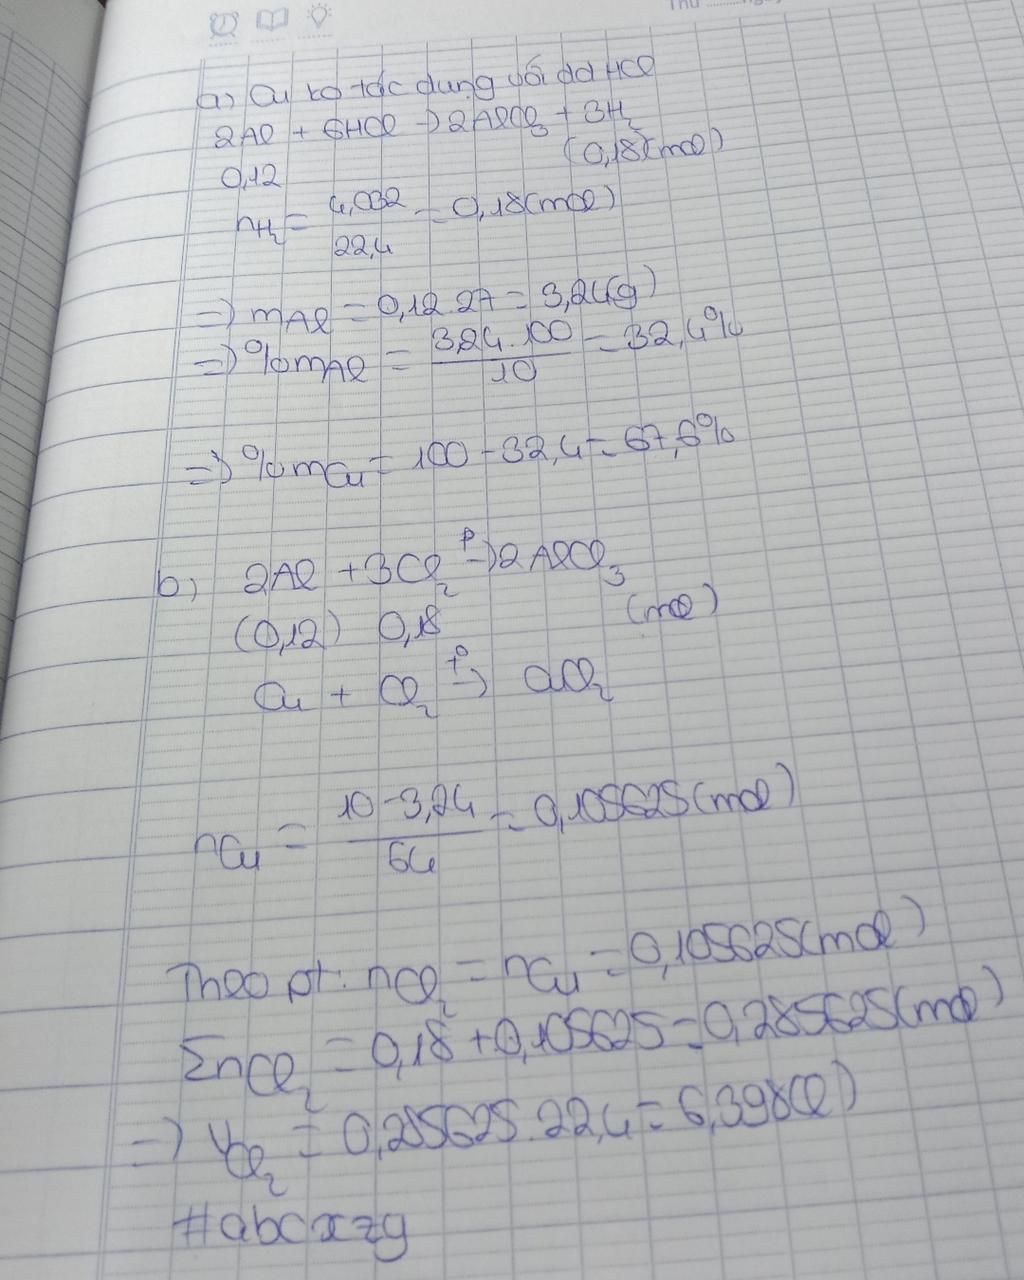 Thứ
a) Cu ko tác dụng với dd HCl
2Al + 6HCl → 2AlCl₃ + 3H₂
0,12 (0,18) (mol)
nH₂ = 4,032/22,4 = 0,18 (mol)
=> mAl = 0,12.27 = 3,24(g)
=> %mAl = 3,24.100/10 = 32,4%
=> %mCu = 100 - 32,4 = 67,6%
b) 2Al + 3Cl₂ t°→ 2AlCl₃
(0,12) 0,18 (mol)
Cu + Cl₂ t°→ CuCl₂
nCu = 10-3,24/64 = 0,105625 (mol)
Theo pt: nCl₂ = nCu = 0,105625 (mol)
ΣnCl₂ = 0,18 + 0,105625 = 0,285625 (mol)
=> VCl₂ = 0,285625.22,4 = 6,398(l)
#abcxzy